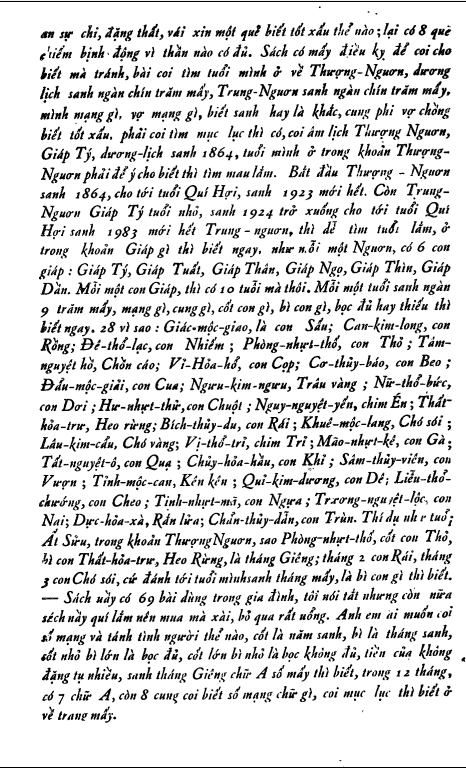 an sự chi, đặng thất, vái xin một quẻ biết tốt xấu thế nào; lại có 8 quẻ
chiếm bịnh động vì thần nào có đủ. Sách có mấy điều kỵ để coi cho
biết mà tránh, bài coi tìm tuổi mình ở về Thượng-Nguơn, dương
lịch sanh ngàn chín trăm mấy, Trung-Nguơn sanh ngàn chín trăm mấy,
mình mạng gì, vợ mạng gì, biết sanh hay là khắc, cung phi vợ chồng
biết tốt xấu, phải coi tìm mục lục thì có, coi âm lịch Thượng Nguơn,
Giáp Tý, dương-lịch sanh 1864, tuổi mình ở trong khoản Thượng-
Nguơn phải để ý cho biết thì tìm mau lắm. Bắt đầu Thượng - Nguơn
sanh 1864, cho tới tuổi Quí Hợi, sanh 1923 mới hết. Còn Trung-
Nguơn Giáp Tý tuổi nhỏ, sanh 1924 trở xuống cho tới tuổi Quí
Hợi sanh 1983 mới hết Trung - nguơn, thì dễ tìm tuổi lắm, ở
trong khoản Giáp gì thì biết ngay, như mỗi một Nguơn, có 6 con
giáp : Giáp Tý, Giáp Tuất, Giáp Thân, Giáp Ngọ, Giáp Thìn, Giáp
Dần. Mỗi một con Giáp, thì có 10 tuổi mà thôi. Mỗi một tuổi sanh ngàn
9 trăm mấy, mạng gì, cung gì, cốt con gì, bì con gì, bọc đủ hay thiếu thì
biết ngay. 28 vì sao : Giác-mộc-giao, là con Sấu; Can-kim-long, con
Rồng; Đê-thổ-lạc, con Nhiếm ; Phòng-nhựt-thố, con Thỏ ; Tâm-
nguyệt hồ, Chồn cáo; Vĩ-Hỏa-hổ, con Cọp; Cơ-thủy-báo, con Beo ;
Đẩu-mộc-giải, con Cua; Ngưu-kim-ngưu, Trâu vàng ; Nữ-thổ-bức,
con Dơi ; Hư-nhựt-thử, con Chuột ; Nguy-nguyệt-yến, chim Én ; Thất-
hỏa-trư, Heo rừng; Bích-thủy-du, con Rái ; Khuê-mộc-lang, Chó sói ;
Lâu-kim-cẩu, Chó vàng; Vị-thổ-trĩ, chim Trĩ ; Mão-nhựt-kê, con Gà ;
Tất-nguyệt-ô, con Quạ ; Chủy-hỏa-hầu, con Khỉ ; Sâm-thủy-viên, con
Vượn ; Tỉnh-mộc-can, Kén kén ; Quỉ-kim-dương, con Dê; Liễu-thổ-
chướng, con Cheo ; Tinh-nhựt-mã, con Ngựa ; Trương-nguyệt-lộc, con
Nai; Dực-hỏa-xà, Rắn lửa; Chẩn-thủy-dẫn, con Trùn. Thí dụ như tuổi
Ất Sửu, trong khoản Thượng Nguơn, sao Phòng-nhựt-thố, cốt con Thỏ,
bì con Thất-hỏa-trư, Heo Rừng, là tháng Giêng; tháng 2 con Rái, tháng
3 con Chó sói, cứ đánh tới tuổi mình sanh tháng mấy, là bì con gì thì biết.
— Sách nầy có 69 bài dùng trong gia đình, tôi nói tắt nhưng còn nữa
sách nầy quí lắm nên mua mà xài, bỏ qua rất uổng. Anh em ai muốn coi
số mạng và tánh tình người thế nào, cốt là năm sanh, bì là tháng sanh,
cốt nhỏ bì lớn là bọc đủ, cốt lớn bì nhỏ là bọc không đủ, tiền của không
đặng tụ nhiều, sanh tháng Giêng chữ A số mấy thì biết, trong 12 tháng,
có 7 chữ A, còn 8 cung coi biết số mạng chữ gì, coi mục lục thì biết ở
về trang mấy.